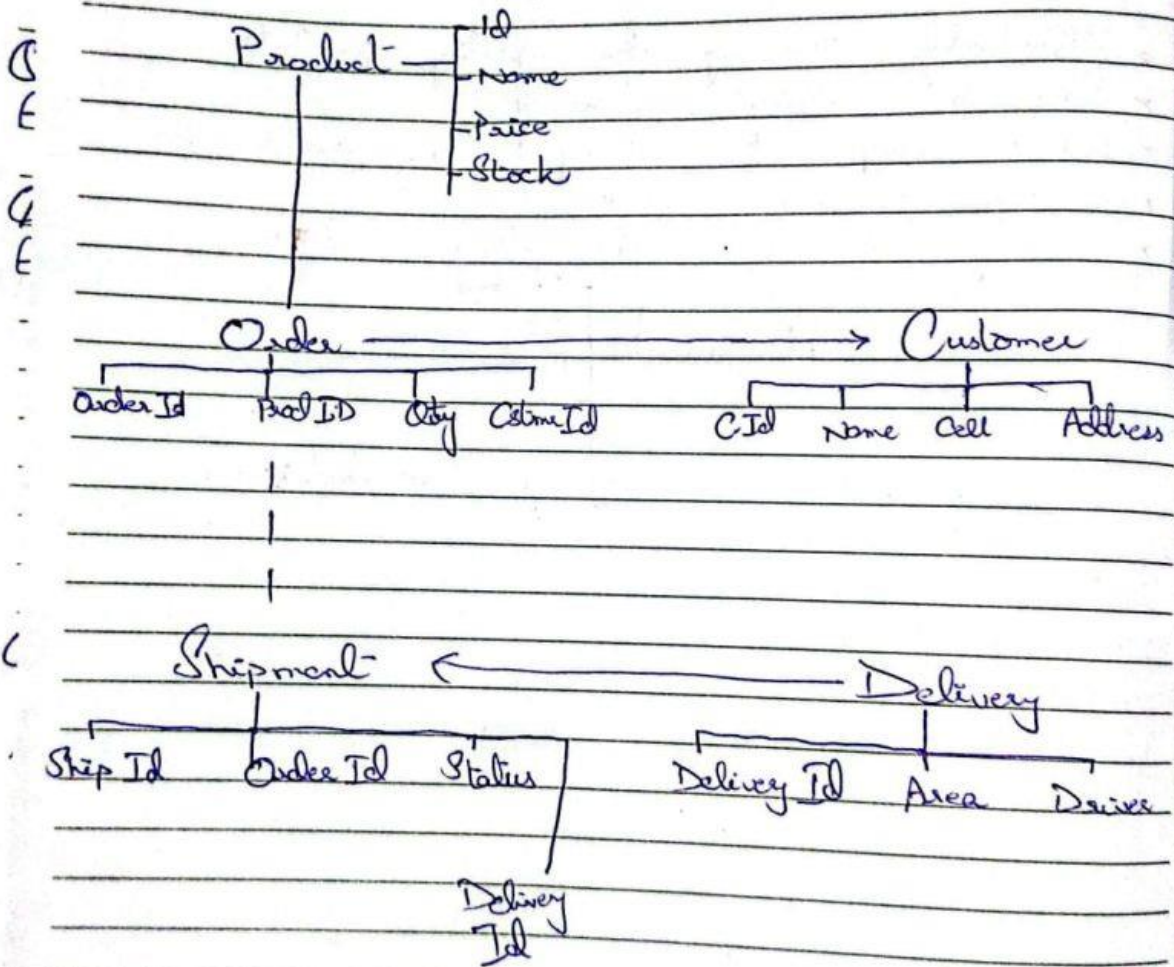 Id
Product
Name
Price
Stock
Order
Customer
Order Id Prod ID Qty Cstmr Id
C Id Name Cell Address
Shipment
Delivery
Ship Id Order Id Status
Delivery Id Area Driver
Delivery
Id